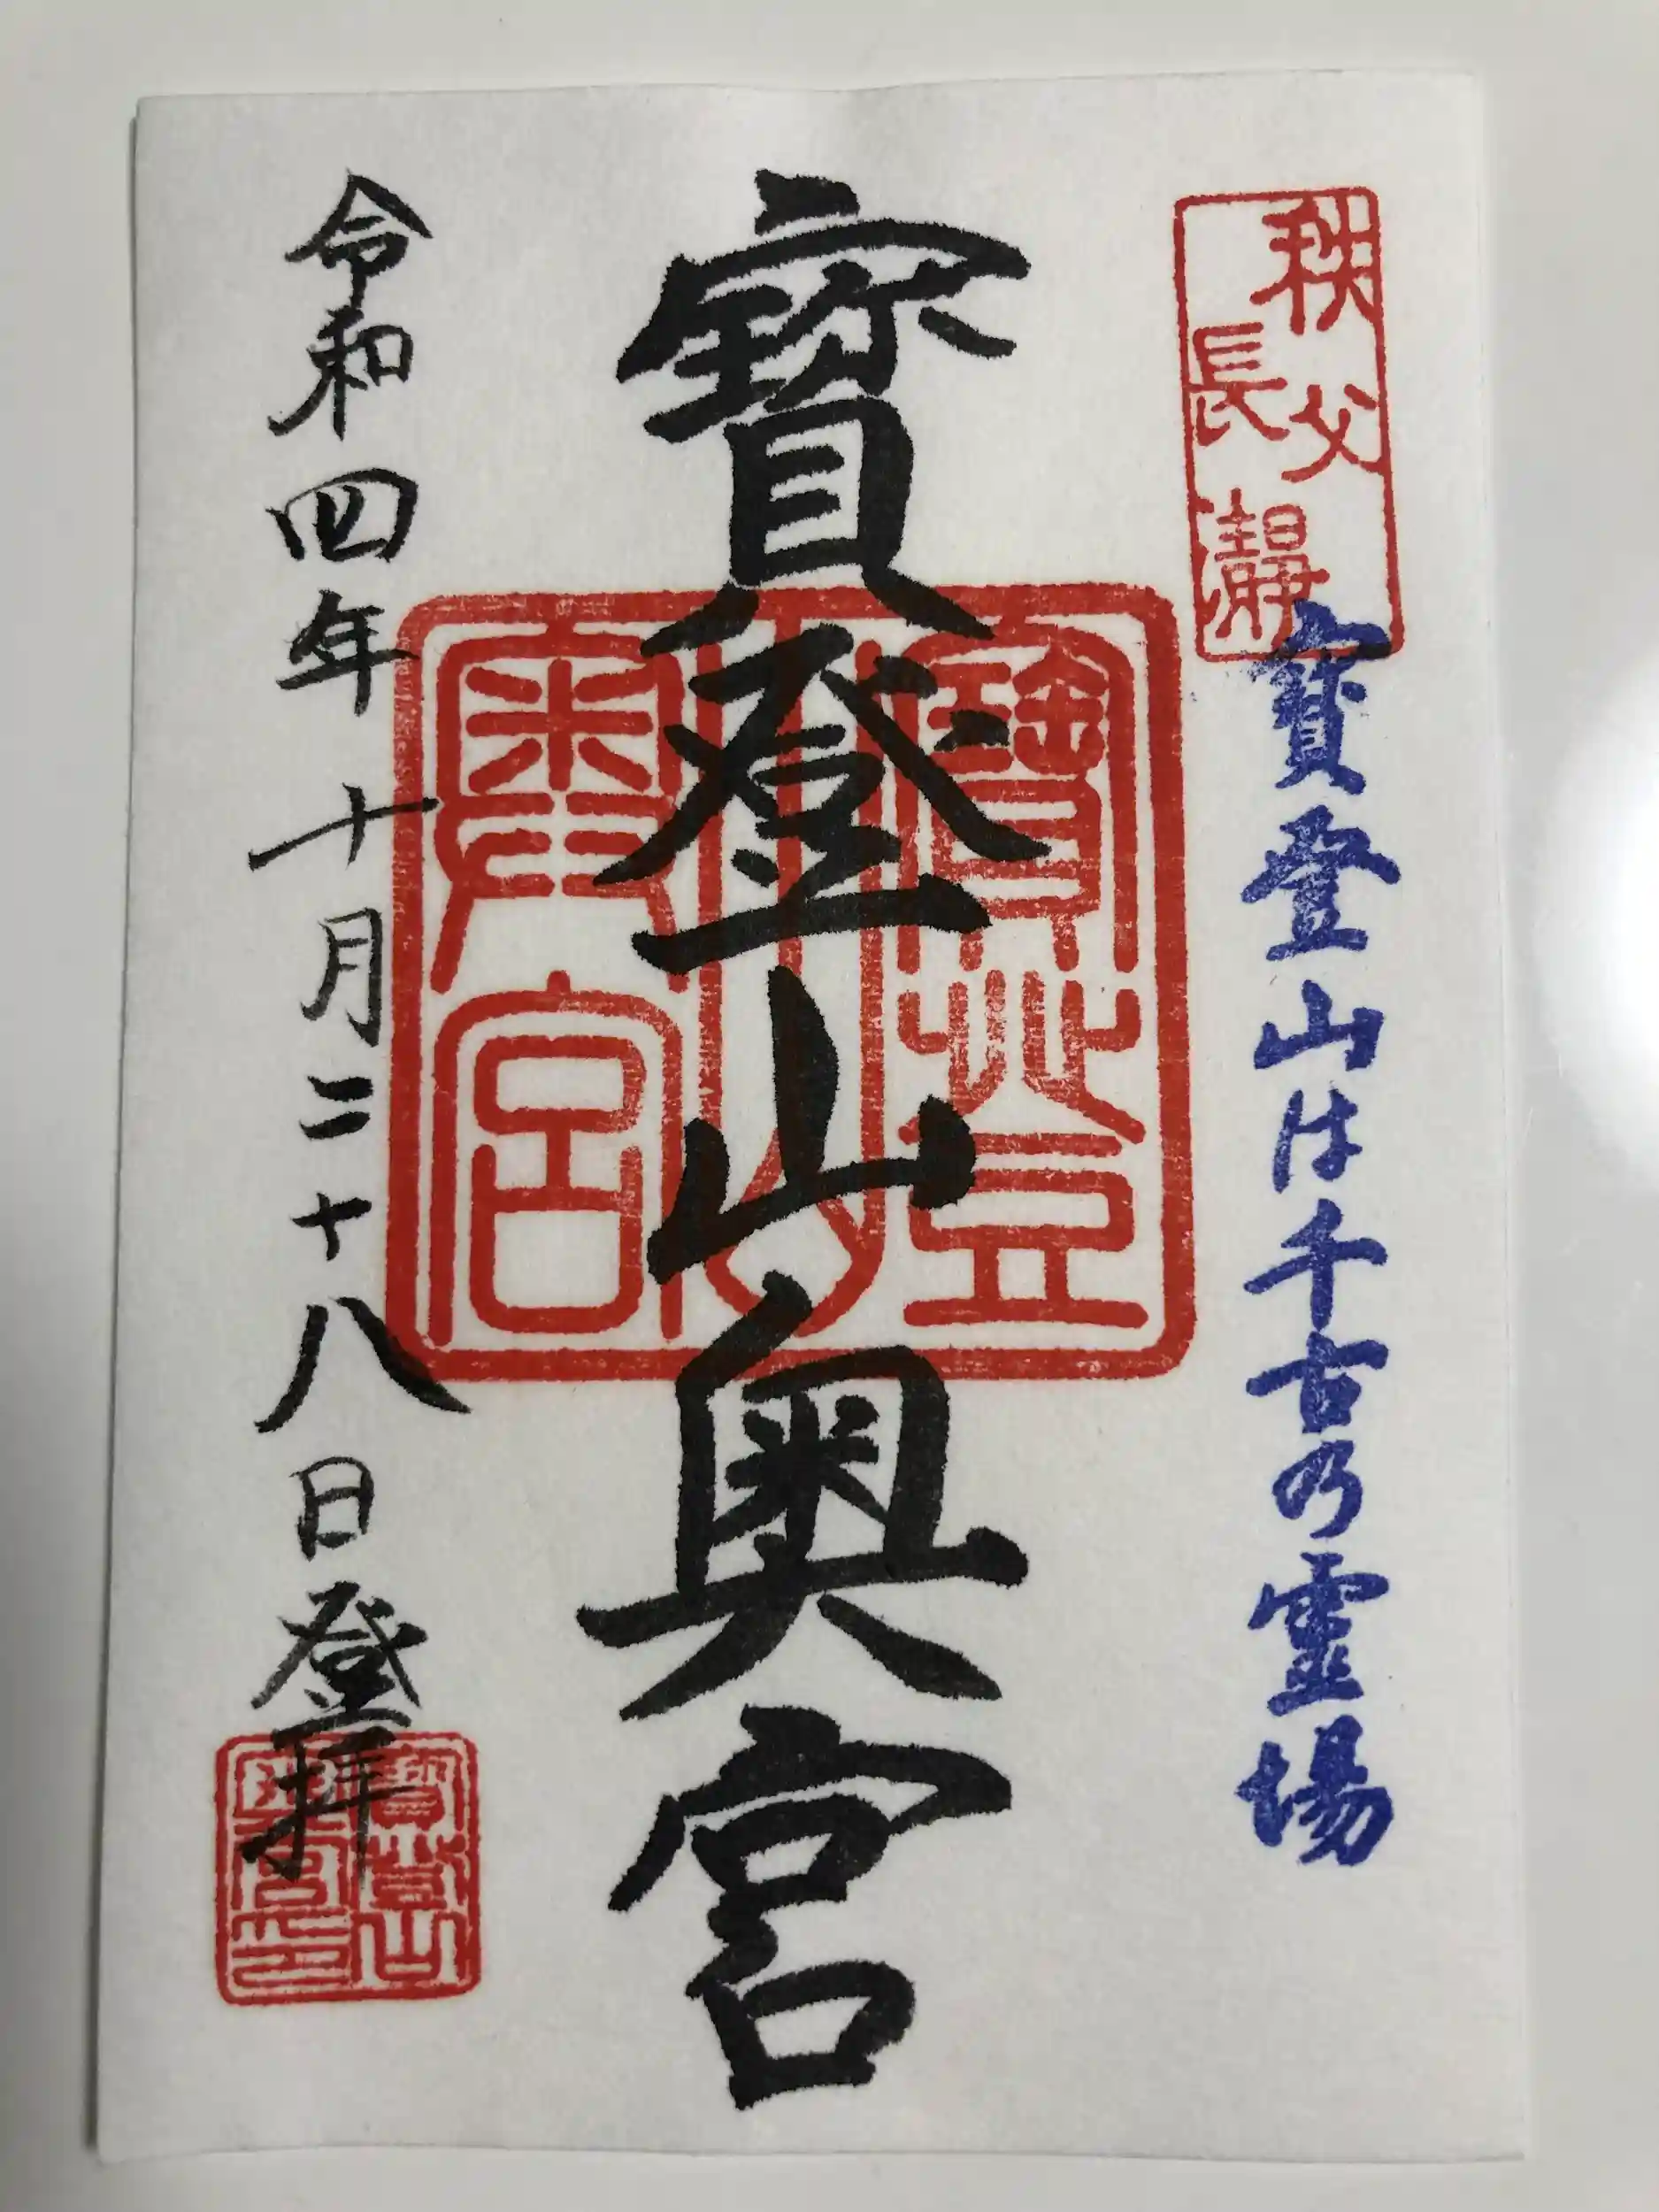 秩父
長瀞
寳登山は千古乃霊場
寳登山奥宮
寳登
山
奥宮
令和四年十月二十八日登拜
寳登山
奥宮印